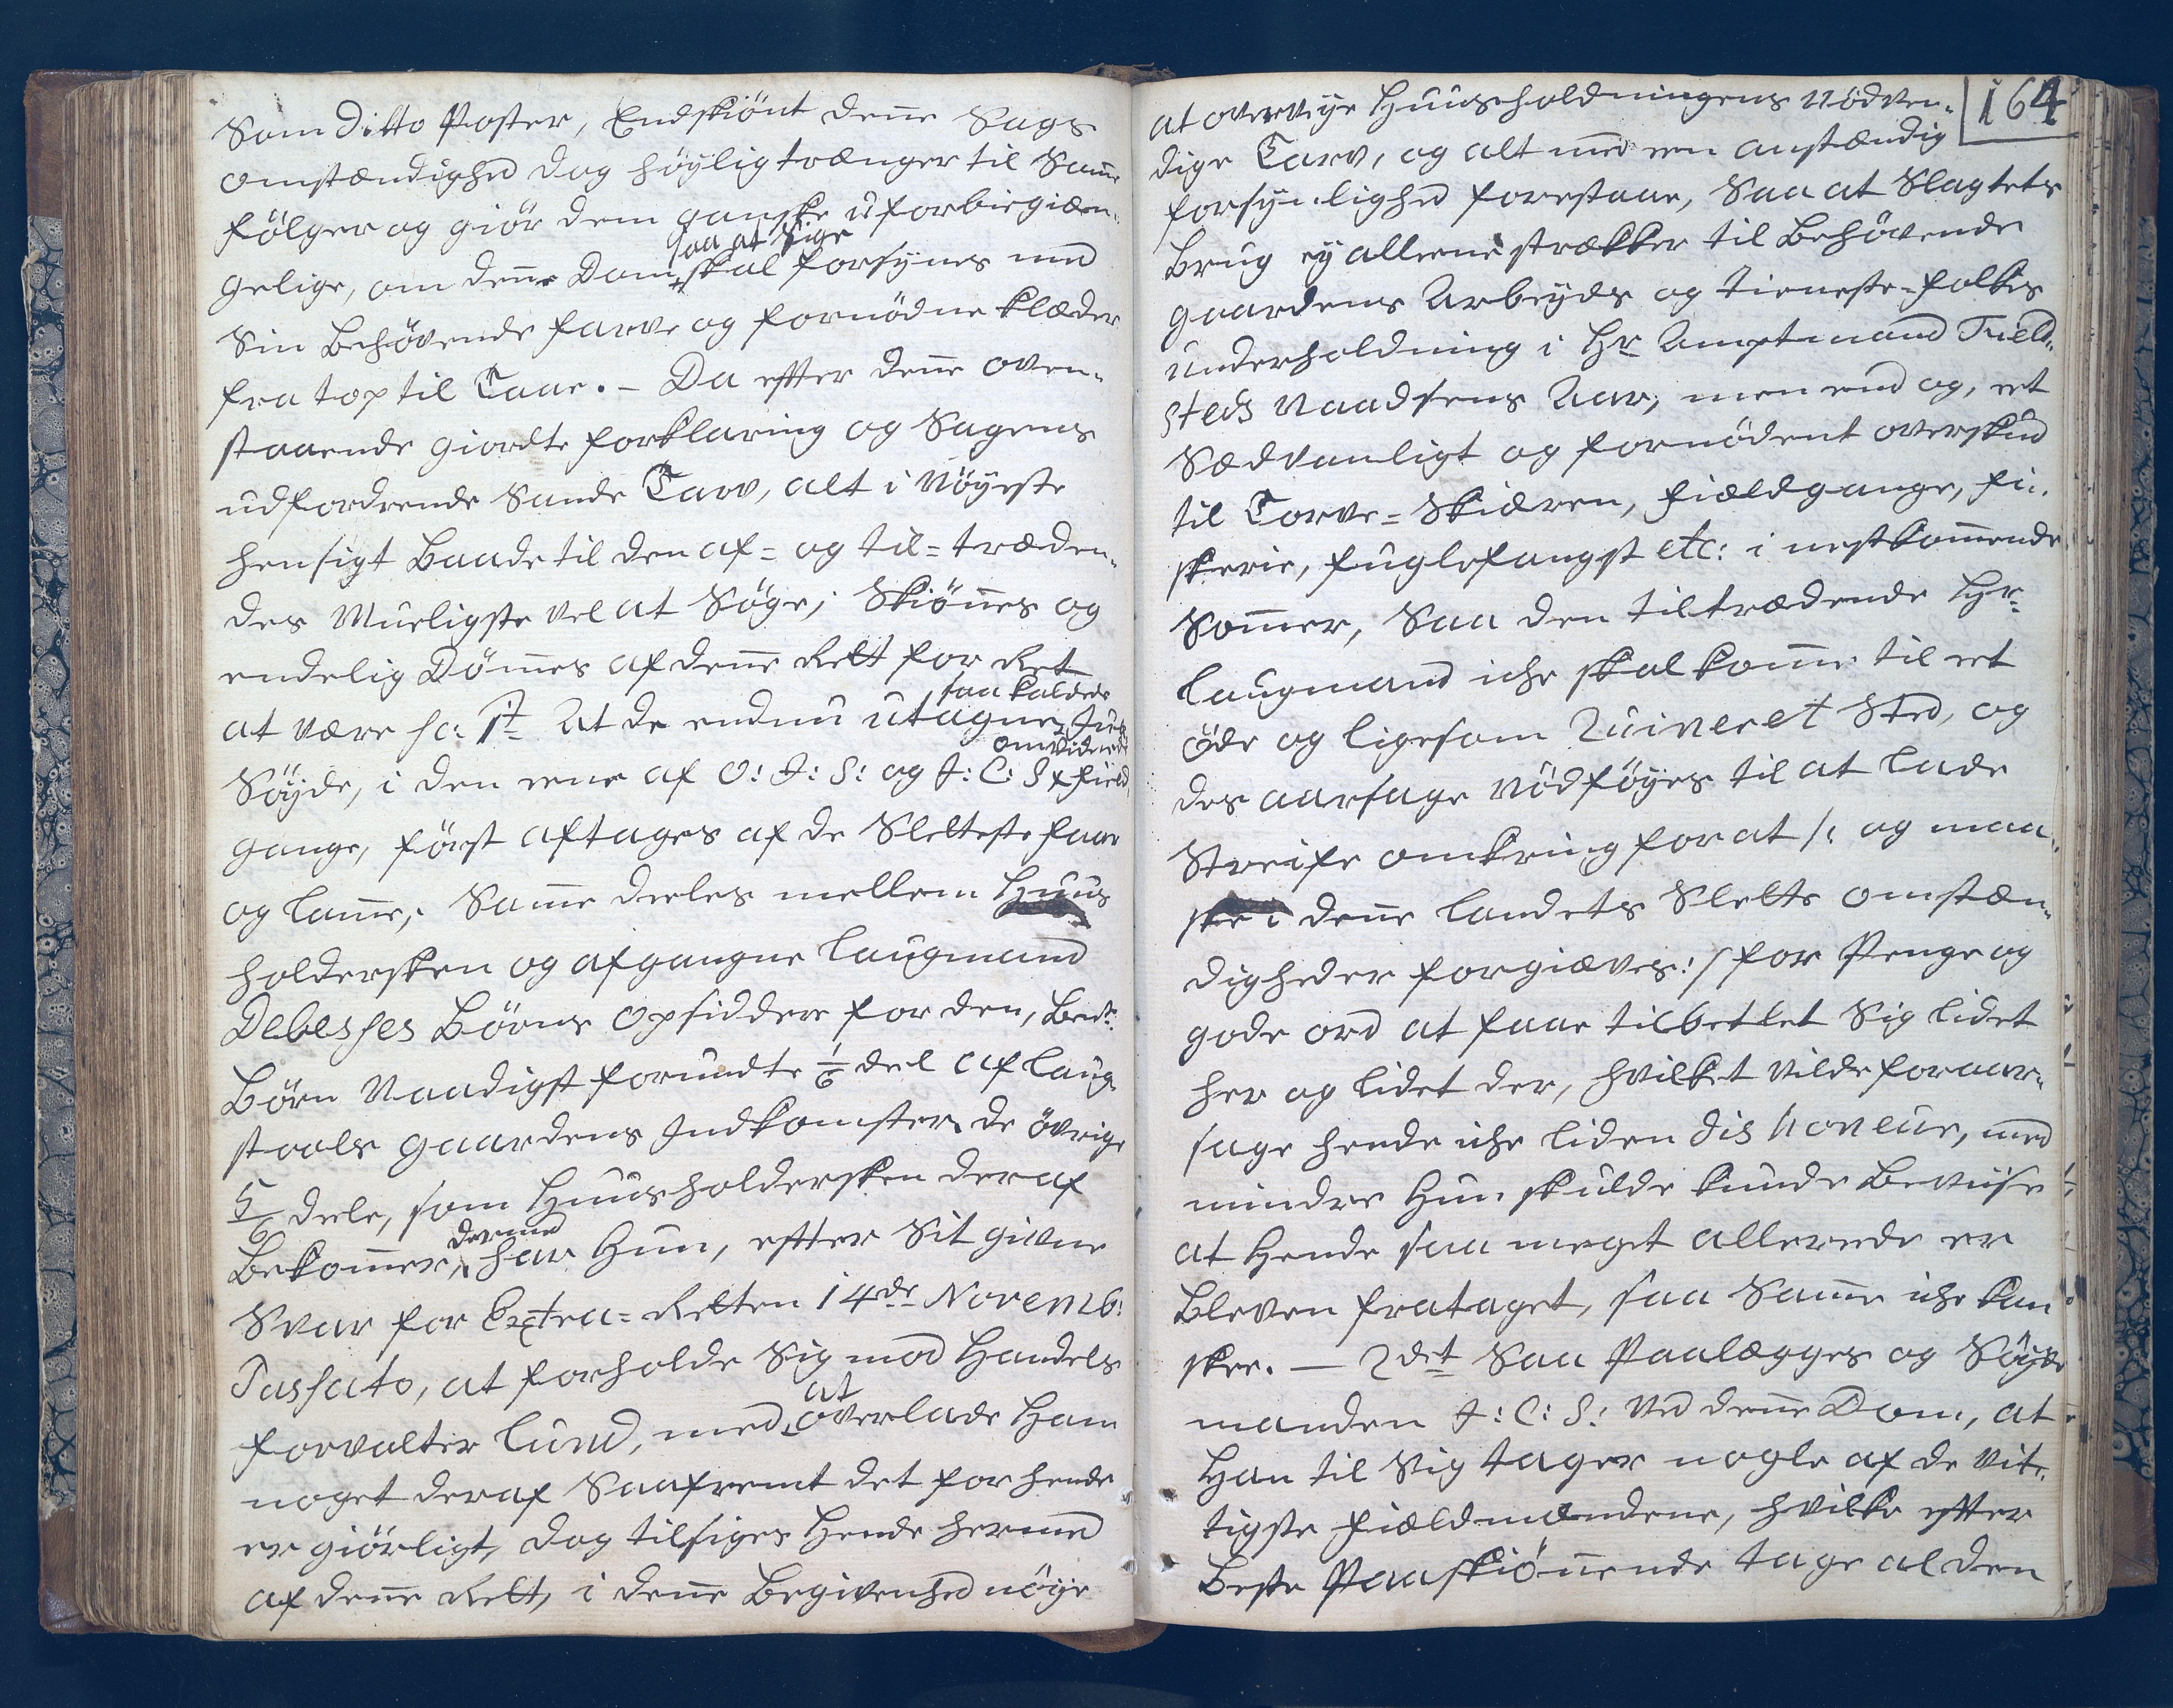 Som Ditto Poster, Endskiönt denne Sags
omstændighed dog höyligtrænger til Samme
fölger og giör dem ganske uforbiegiæn-
saa at Sige
gelige, om denne Dom skal forsÿnes med
Sin Behövende farve og fornödne klæder
fra top til Taae. - Da efter denne oven-
staaende giordte forklaring og Sagens
udfordrende Sande Tarv, alt i Nöyeste
hensigt Baade til den af- og til-træden-
des Mueligste vel at Söge; Skiönnes og
endelig Dömmes af denne Rett for Ret
saa kaldede
at være sc: 1t At de endnu utagne Jule
omvidende
Söyde, i den eene af O: J: S: og J: C: S field
gange, först aftages af de Sletteste faar
og Lamme; Samme deeles mellem Huus
holdersken og afgangne Laugmand
Debeshes Börns Opsiddere for den, bemte:
Börn Naadigst forundte 1/6 deel af Laug-
stools gaardens Indkomster. de övrige
5/6 deele, som Huusholdersken deraf
dermed
Bekommer, har Hun, efter Sit givne
Svar for Extra-Retten 14de Novemb:
Passato, at forholde Sig mod Handels
at
forvalter Lund, med overlade Ham
noget deraf Saafremt det for hende
er giörligt, dog tilsiges Hende hermed
af denne Rett, i denne Begivenhed nöye
164
at overveye Huusholdningens Nödven-
dige Tarv, og alt med een anstændig
forsynlighed forestaae, Saa at Slagtets
Brug ey alleene strækker til Behövende
gaardens Arbeyds og tieneste-folkes
underholdning i Hr Amptmand Tield-
steds Naadsens Aar, men end og, eet
Sædvanligt og fornödent overskud
til Torve-Skiæren, fieldgange, fi-
skerie, fuglefangst etc: i nestkommende
Sommer, Saa den tiltrædende Hr
Laugmand iche skal komme til eet
öde og ligesom Ruineret Sted, og
des aarsage Nödföyes til at lade
Streife omkring for at /: og maa-
skee i denne Landets Slette omstæn-
digheder forgiæves :/ for Penge og
gode ord at faae tilbetlet Sig lidet
her og lidet der, hvilket vilde foraar-
sage hende iche liden dishoneur, med
mindre Hun skulde kunde Beviise
at Hende saa meget allerede er
Bleven frataget, saa Samme iche kan
skee. - 2det Saa Paalægges og Söyde
manden J: C: S: ved denne Dom, at
Han til Sig tager nogle af de vit-
tigste fieldmændene, hvilke efter
Beste Paaskiönnende tage al den